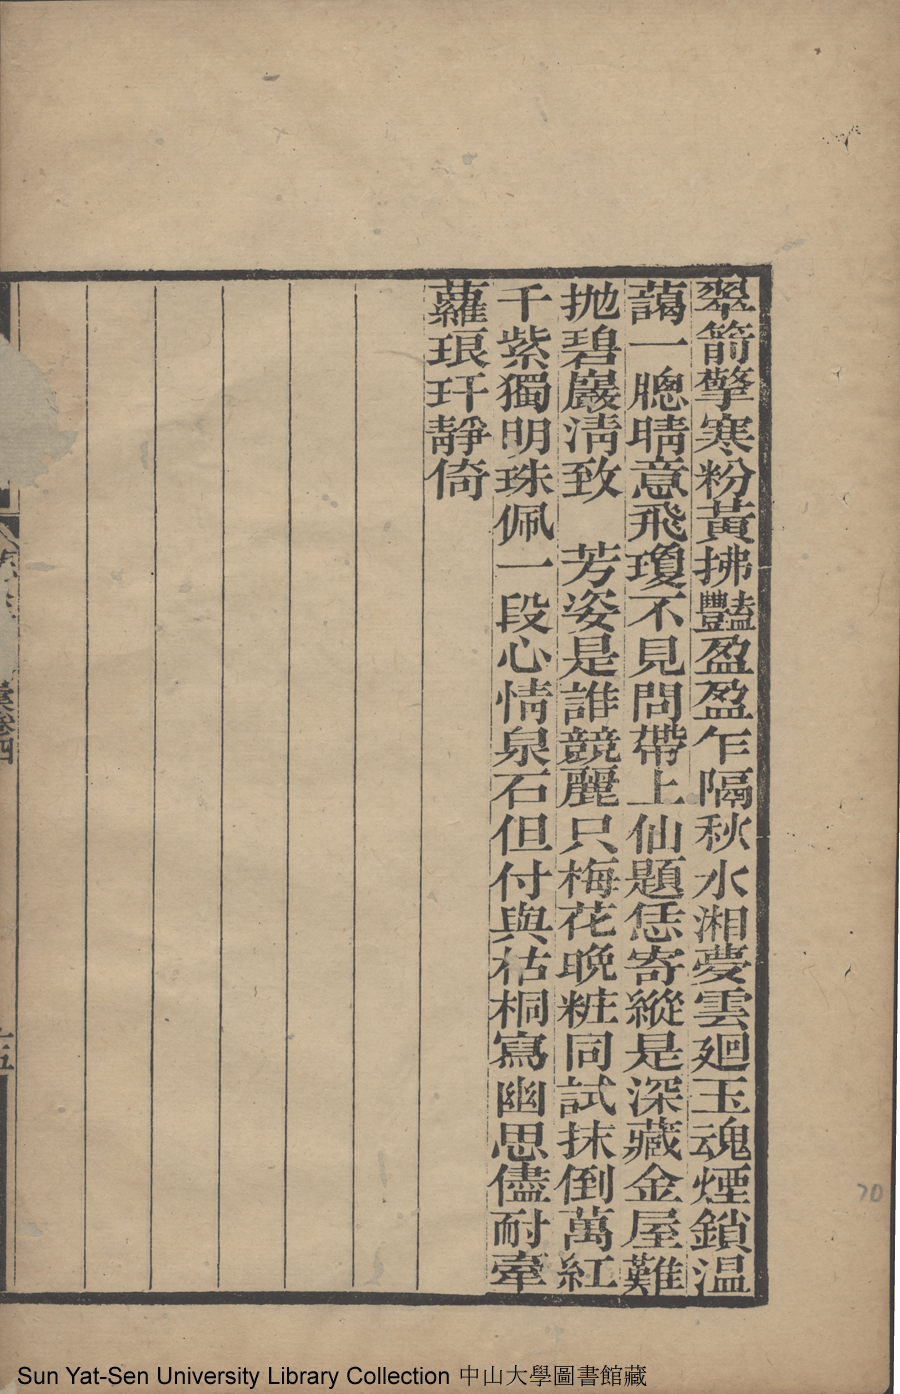 翠箭擎寒粉黃拂豔盈盈乍隔秋水湘夢雲廻玉魂煙鎖温
藹一牕晴意飛瓊不見問帶上仙題恁寄縱是深藏金屋難
拋碧巖淸致　芳姿是誰競麗只梅花晚粧同試抹倒萬紅
千紫獨明珠佩一段心情泉石但付與枯桐寫幽思儘耐牽
蘿琅玕靜倚
卷四
十五
70
Sun Yat-Sen University Library Collection 中山大學圖書館藏